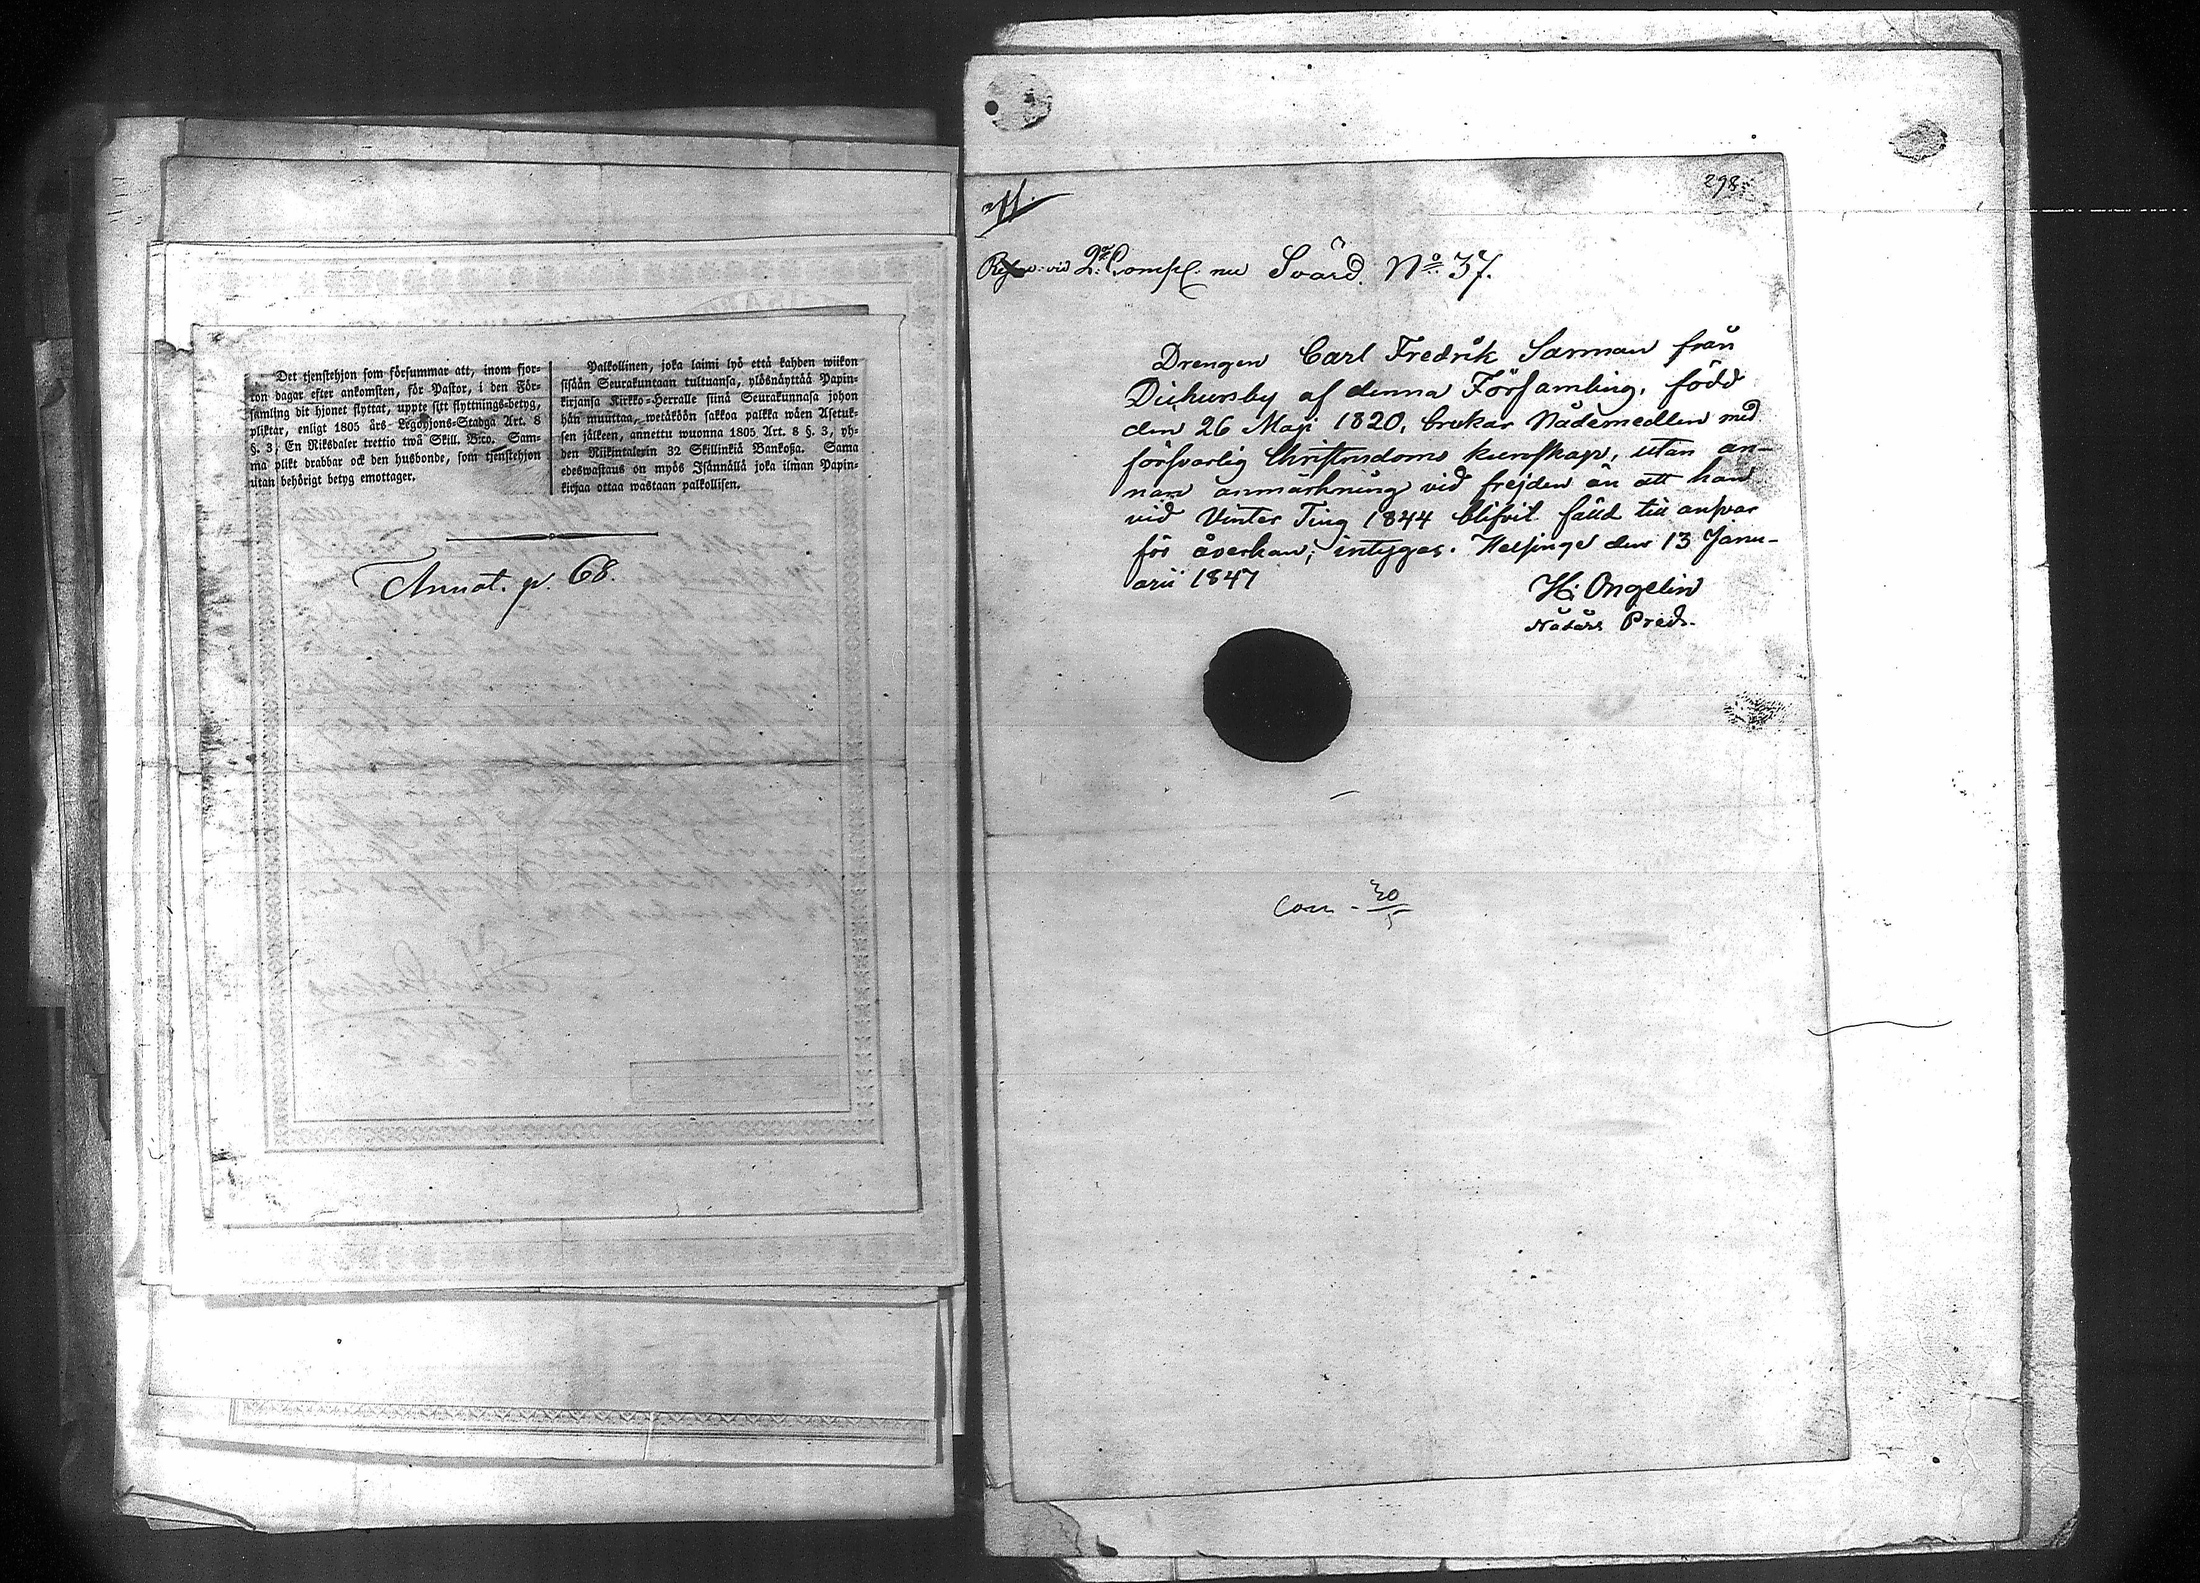 Det tjenstehjon som försummar att, inom fjor-
ton dagar efter ankomsten, för Pastor, i den För-
samling dit hjonet flyttat, uppte sitt flyttnings-betyg,
pliktar, enligt 1805 års Legohjons-Stadga Art. 8
§. 3, En Riksdaler trettio twå Skill. B:co. Sam-
ma plikt drabbar ock den husbonde, som tjenstehjon
utan behörigt betyg emottager.
Palkollinen, joka laimi lyö että kahden wiikon
sisään Seurakuntaan tultuansa, ylösnäyttää Papin-
kirjansa Kirkko-Herralle siinä Seurakunnasa johon
hän muuttaa, wetäköön sakkoa palkka wäen Asetuk-
sen jälkeen, annettu wuonna 1805 Art. 8 §. 3, yh-
den Riikintalerin 32 Skillinkiä Bankosa. Sama
edeswastaus on myös Isännällä joka ilman Papin-
kirjaa ottaa wastaan palkollisen.
Annot. p. 68.
298
vid 2:a Comp. nu Svärd. No 37.
Drengen Carl Fredrik Sarman från
Dickursby af denna Församling, född
den 26 Maji 1820, brukar Nådemedlen med
försvarlig Christendoms kunskap, utan an-
nan anmärkning vid frejden än att han
vid Vinter Ting 1844 blifvit fälld till ansvar
för åverkan; intygas. Helsinge den 13 Janu-
arii 1847
H: Ongelin
Nådårs Pred.
30